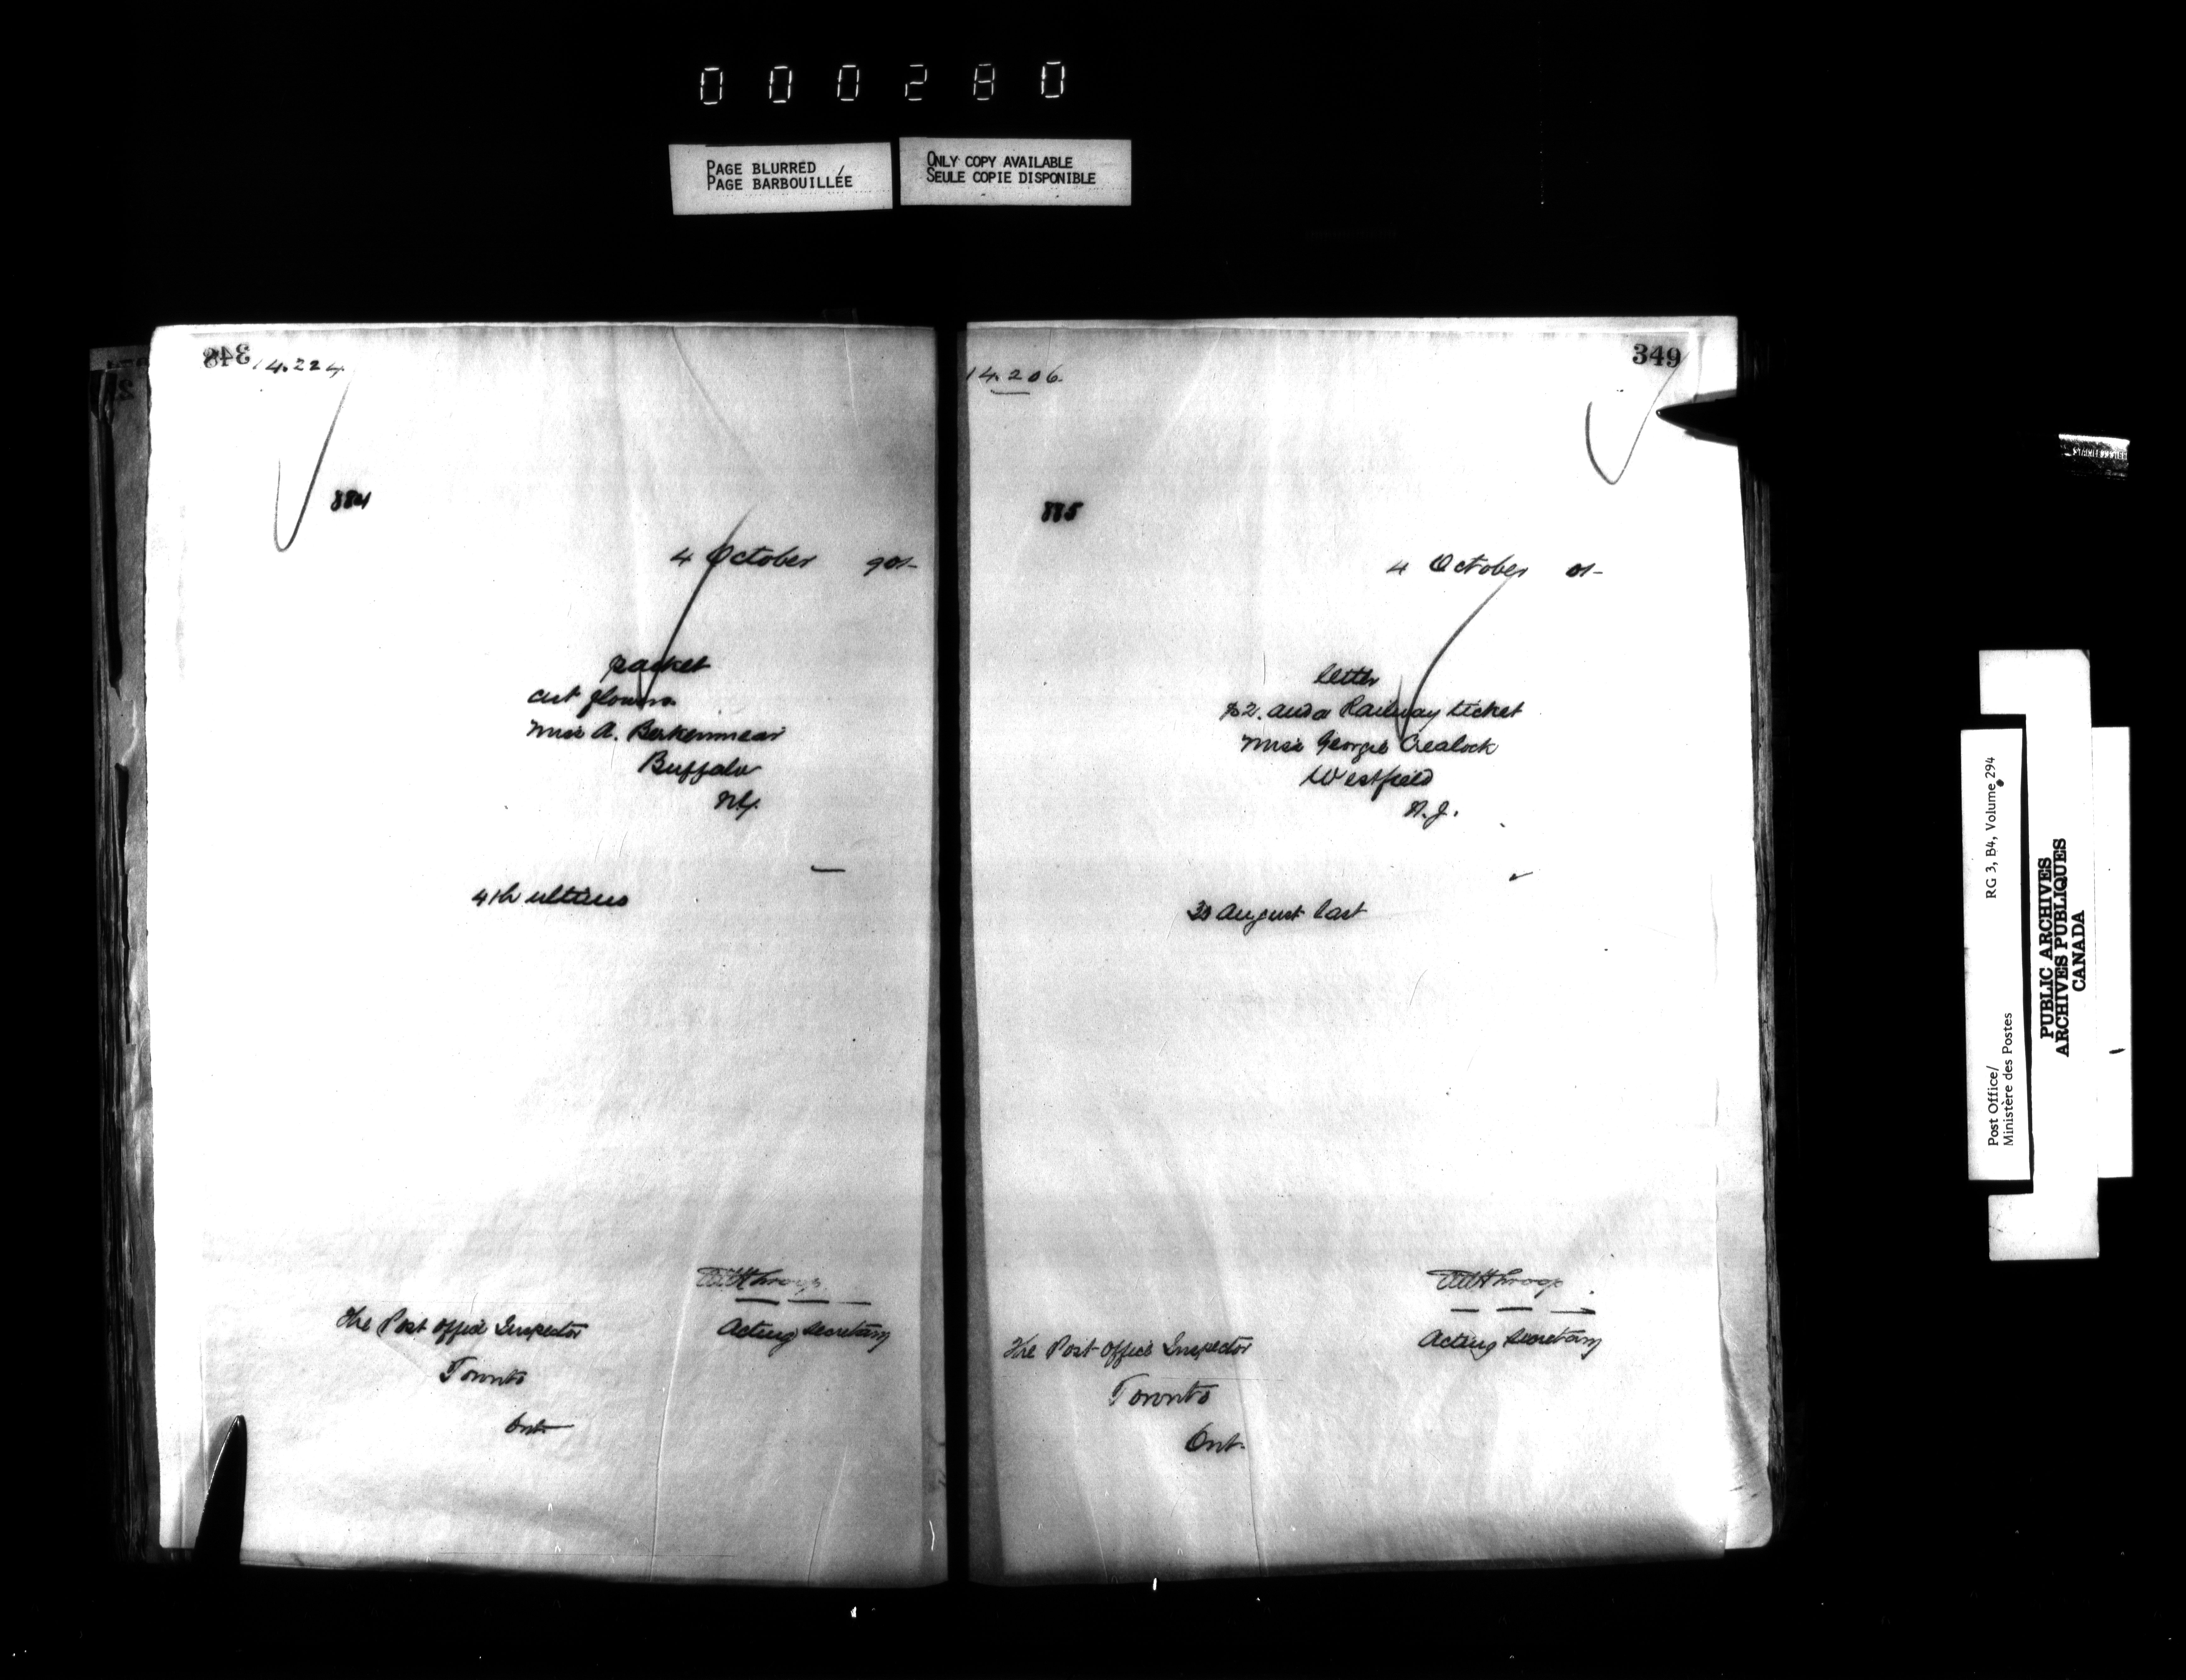 000280
PAGE BLURRED
PAGE BARBOUILLÉE
ONLY COPY AVAILABLE
SEULE COPIE DISPONIBLE
348
14.224
884
4 October 901-
packet
cut flowers
Miss A.
Buffalo
N.Y.
4th ultimo
Acting Secretary
The Post Office Inspector
Toronto
Ont
349
14.206.
885
4 October 01-
letter
$2. and a Railway ticket
Miss Georgie Crealock
Westfield
N.J.
30 August last
Acting Secretary
The Post Office Inspector
Toronto
Ont.
Post Office/ RG 3, B4, Volume 294
Ministère des Postes
PUBLIC ARCHIVES
ARCHIVES PUBLIQUES
CANADA